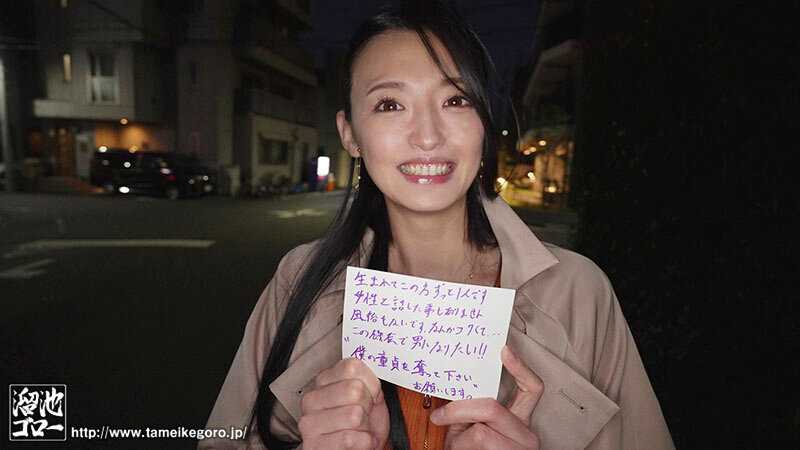 生まれてこの方ずっと1人です
女性と話した事もありません
風俗もないです。なんかコワくて...
この機会で男になりたい!!
"僕の童貞を奪って下さい"
お願いします。
溜池
ゴロー
http://www.tameikegoro.jp/